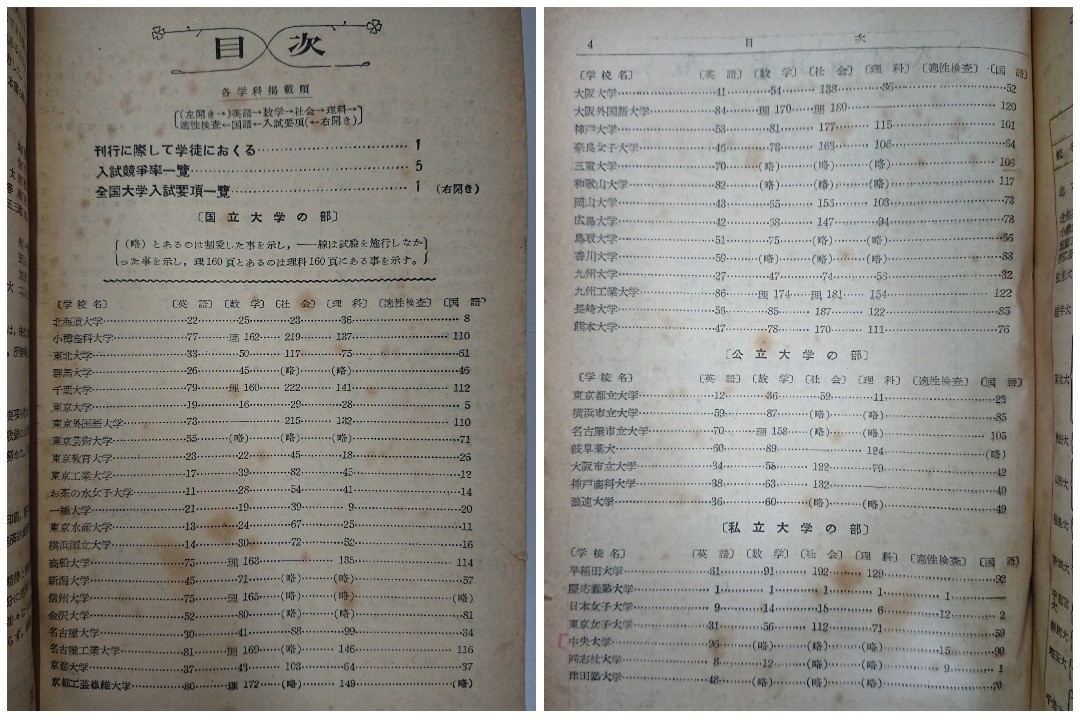 目次
各学科掲載順
(左開き→)英語→数学→社会→理科→
適性検査←国語←入試要項(←右開き)
刊行に際して学徒におくる……1
入試競争率一覧……5
全国大学入試要項一覧……1 (右開き)
〔国立大学の部〕
(略)とあるのは割愛した事を示し,――線は試験を施行しなか
った事を示し,理160頁とあるのは理科160頁にある事を示す。
〔学校名〕 〔英語〕 〔数学〕 〔社会〕 〔理科〕 〔適性検査〕 〔国語〕
北海道大学……22……25……23……36……8
小樽商科大学……77……理 162……219……137……110
東北大学……33……50……117……75……61
群馬大学……26……45……(略)……(略)……46
千葉大学……79……理 160……222……141……112
東京大学……19……16……29……28……5
東京外国語大学……73……――……215……132……110
東京芸術大学……55……(略)……(略)……(略)……71
東京教育大学……23……22……45……18……26
東京工業大学……17……39……82……45……12
お茶の水女子大学……11……28……54……41……14
一橋大学……21……19……39……9……20
東京水産大学……13……24……67……25……11
横浜国立大学……14……30……72……52……16
商船大学……75……理 163……――……135……114
新潟大学……45……71……(略)……(略)……57
信州大学……75……理 165……(略)……(略)……(略)
金沢大学……52……80……(略)……(略)……81
名古屋大学……30……41……88……99……34
名古屋工業大学……81……理 169……(略)……146……116
京都大学……37……43……103……64……37
京都工芸繊維大学……80……理 172……(略)……149……(略)
4 目次
〔学校名〕 〔英語〕 〔数学〕 〔社会〕 〔理科〕 〔適性検査〕 〔国語〕
大阪大学……41……54……138……86……52
大阪外国語大学……84……理 170……理 180……――……120
神戸大学……53……81……177……115……101
奈良女子大学……46……73……163……106……64
三重大学……70……(略)……(略)……(略)……106
和歌山大学……82……(略)……(略)……(略)……117
岡山大学……43……65……156……103……73
広島大学……42……68……147……94……78
鳥取大学……51……75……(略)……(略)……56
香川大学……59……(略)……(略)……(略)……88
九州大学……27……47……74……58……32
九州工業大学……86……理 174……理 181……154……122
長崎大学……56……85……187……122……85
熊本大学……47……78……170……111……76
〔公立大学の部〕
〔学校名〕 〔英語〕 〔数学〕 〔社会〕 〔理科〕 〔適性検査〕 〔国語〕
東京都立大学……12……36……59……11……23
横浜市立大学……59……87……(略)……(略)……85
名古屋市立大学……70……理 158……(略)……(略)……105
岐阜薬大……60……89……――……124……(略)
大阪市立大学……34……58……122……79……42
神戸商科大学……38……63……132……――……40
浪速大学……36……60……(略)……(略)……49
〔私立大学の部〕
〔学校名〕 〔英語〕 〔数学〕 〔社会〕 〔理科〕 〔適性検査〕 〔国語〕
早稲田大学……61……91……192……129……92
慶応義塾大学……1……1……1……1……1……――
日本女子大学……9……14……18……6……12……2
東京女子大学……31……56……112……71……59
中央大学……96……(略)……(略)……(略)……15……90
同志社大学……8……12……(略)……(略)……9……1
津田塾大学……48……(略)……(略)……(略)……70